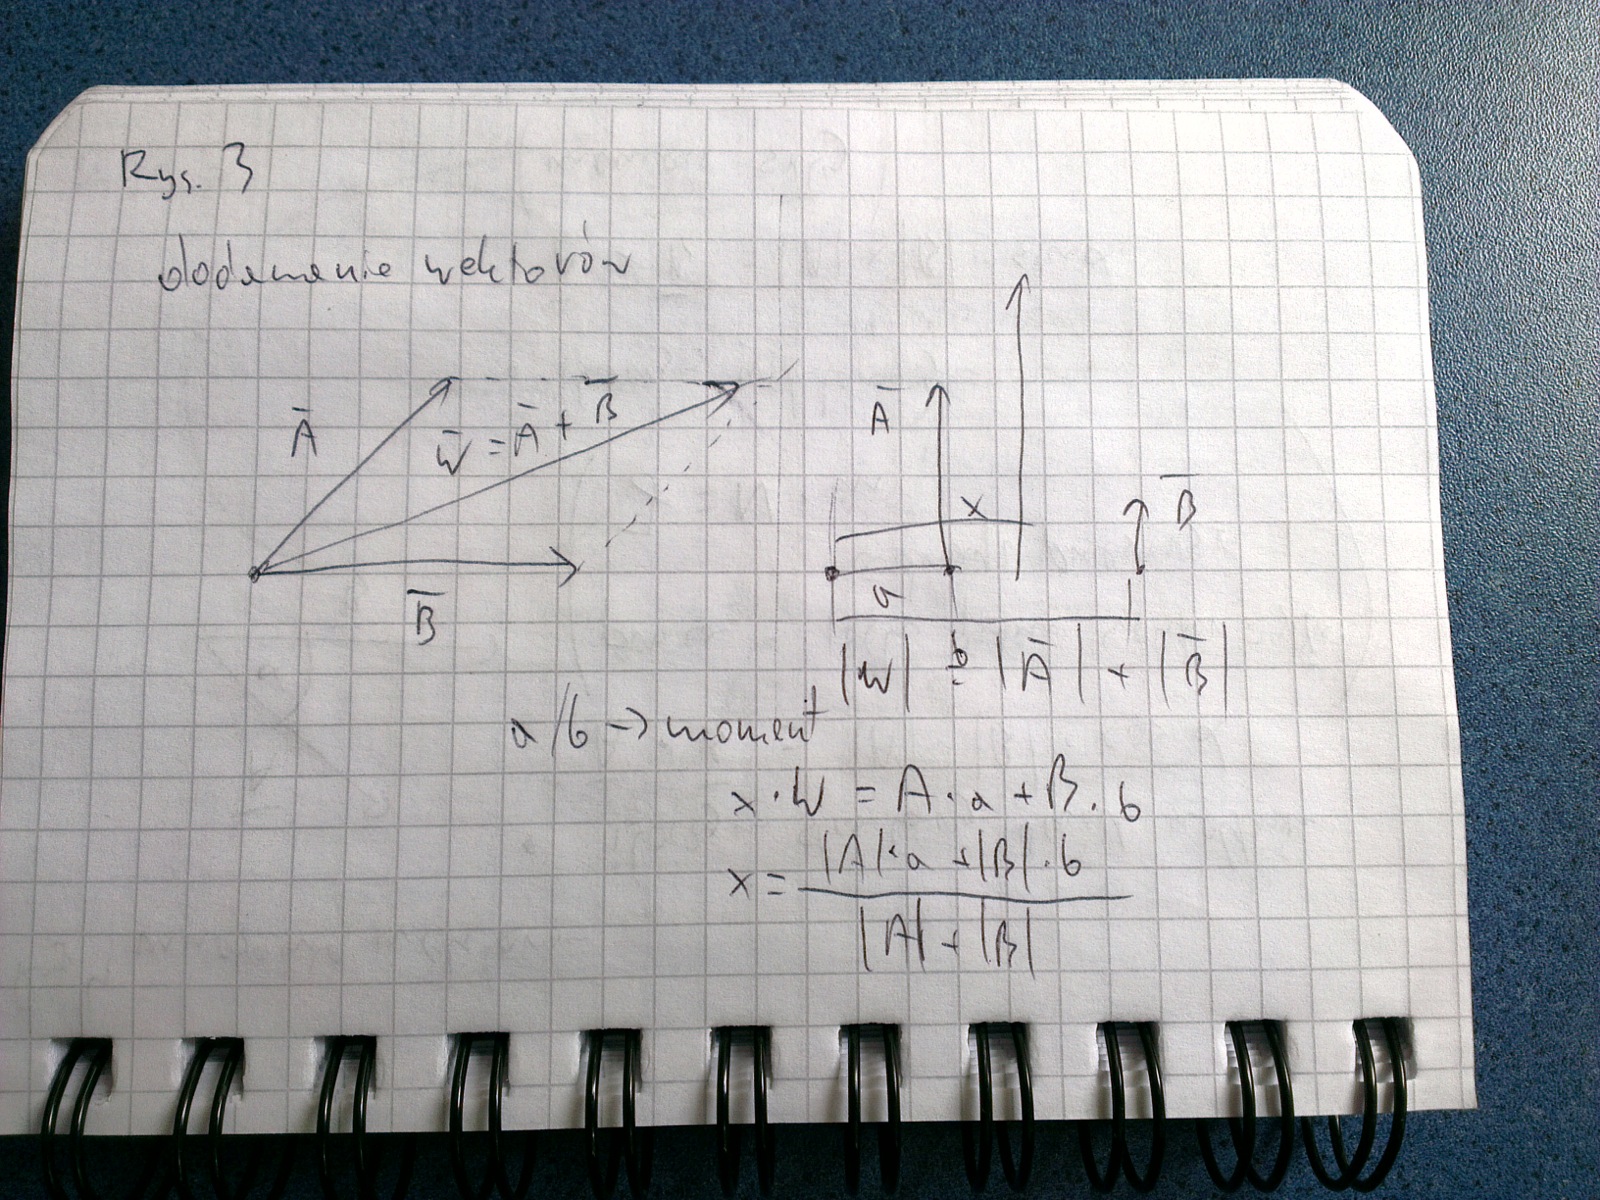 Rys. 3
dodawanie wektorów
Ā
W̄ = Ā + B̄
B̄
Ā
x
B̄
a
b
|W| = |Ā| + |B̄|
a/b -> moment
x · W = A · a + B · b
x = |A| · a + |B| · b
|A| + |B|